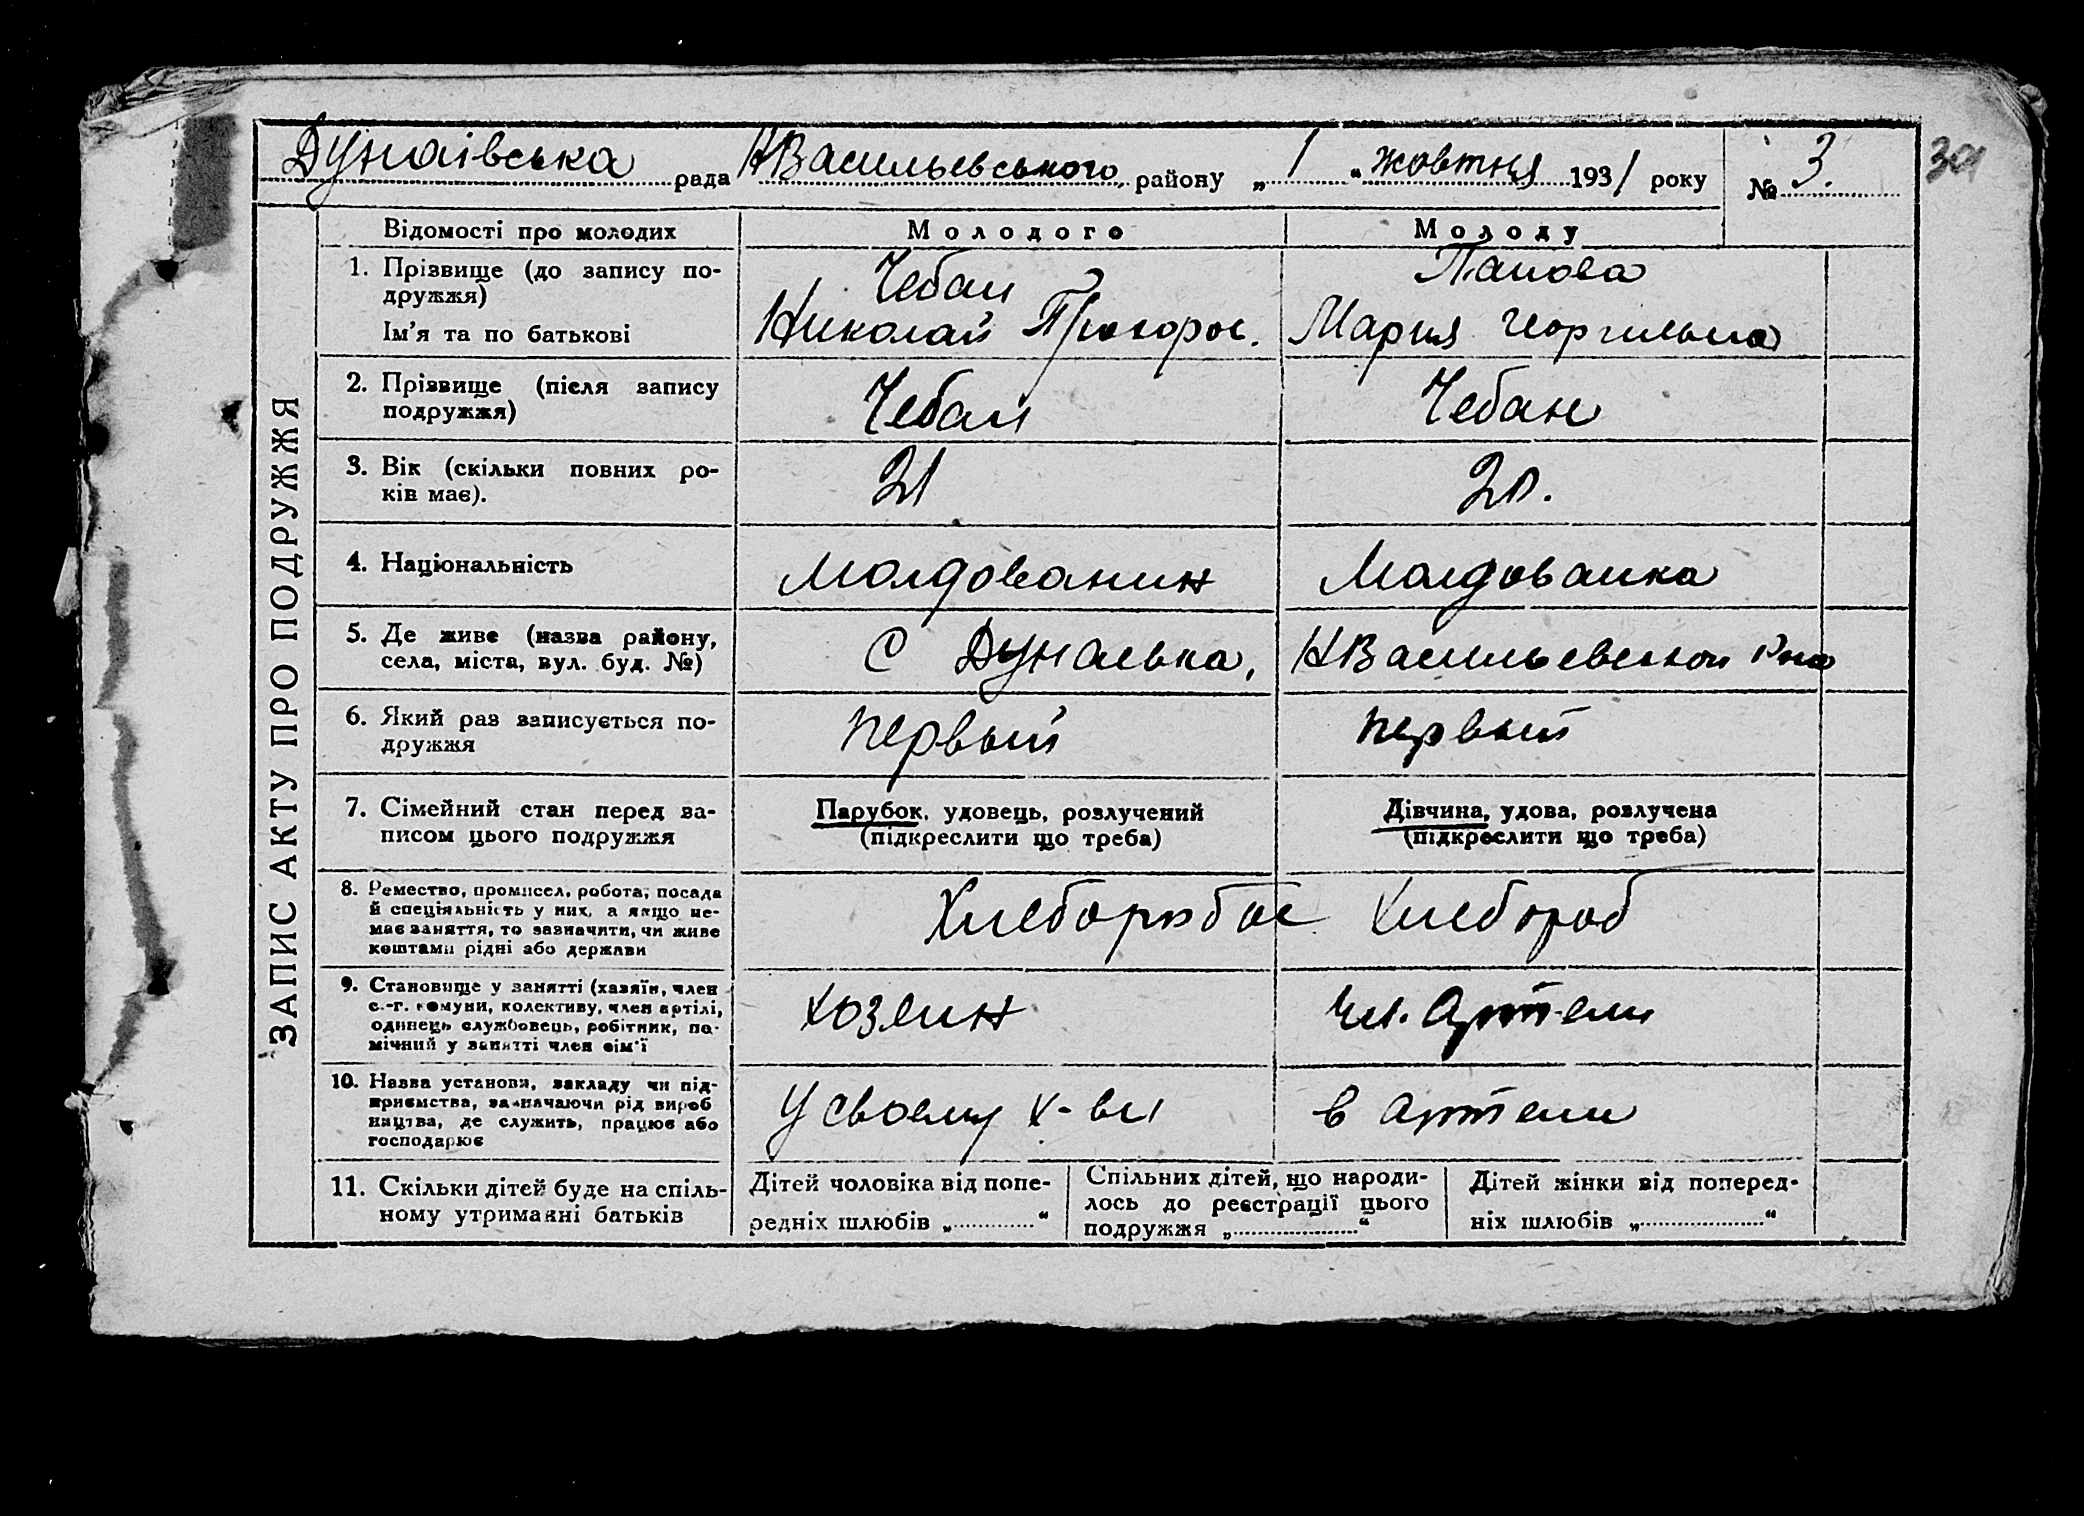 Дунаівська рада НВасильевського району „1“ жовтня 1931 року № 3.
ЗАПИС АКТУ ПРО ПОДРУЖЖЯ
Відомості про молодих
Молодого
Молоду
1. Прізвище (до запису по-
дружжя)
Ім'я та по батькові
Чебан
Николай Прохоров.
Мария Георгиевна
2. Прізвище (після запису
подружжя)
Чебан
Чебан
3. Вік (скільки повних ро-
ків має).
21
20.
4. Національність
Молдованин
Молдованка
5. Де живе (назва району,
села, міста, вул. буд. №)
С Дунаевка,
НВасильевского Р-на
6. Який раз записується по-
дружжя
первый
первый
7. Сімейний стан перед за-
писом цього подружжя
Парубок, удовець, розлучений
(підкреслити що треба)
Дівчина, удова, розлучена
(підкреслити що треба)
8. Ремество, промисел, робота, посада
й спеціяльність у них, а якщо не-
має заняття, то зазначити, чи живе
коштами рідні або держави
Хлебороб
9. Становище у занятті (хазяїн, член
с.-г. комуни, колективу, член артілі,
одинець службовець, робітник, по-
мічний у занятті член сім'ї
хозяин
чл. Артели
10. Назва установи, закладу чи під-
приємства, зазначаючи рід вироб
ництва, де служить, працює або
господарює
у своему х-ви
в артели
11. Скільки дітей буде на спіль-
ному утриманні батьків
Дітей чоловіка від попе-
редніх шлюбів „ “
Спільних дітей, що народи-
лось до реєстрації цього
подружжя „ “
Дітей жінки від поперед-
ніх шлюбів „ “